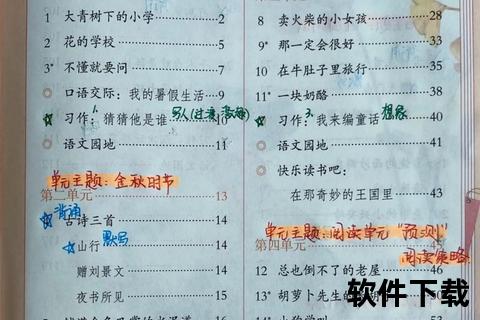 1 大青树下的小学 2
2 花的学校 5
3* 不懂就要问 7
口语交际：我的暑假生活 9
1.
习作：猜猜他是谁 10
语文园地 11
单元主题：金秋时节
第二单元 13
背诵
4 古诗三首 14
山行 默写 14
赠刘景文 14
夜书所见 15
8 卖火柴的小女孩 28
9 那一定会很好 33
10 在牛肚子里旅行 35
11* 一块奶酪 38
3.
习作：我来编童话 想象 40
语文园地 41
快乐读书吧：
在那奇妙的王国里 43
单元主题：阅读单元“预测”
阅读策略
第四单元
12 总也倒不了的老屋
13* 胡萝卜先生的
软件下载